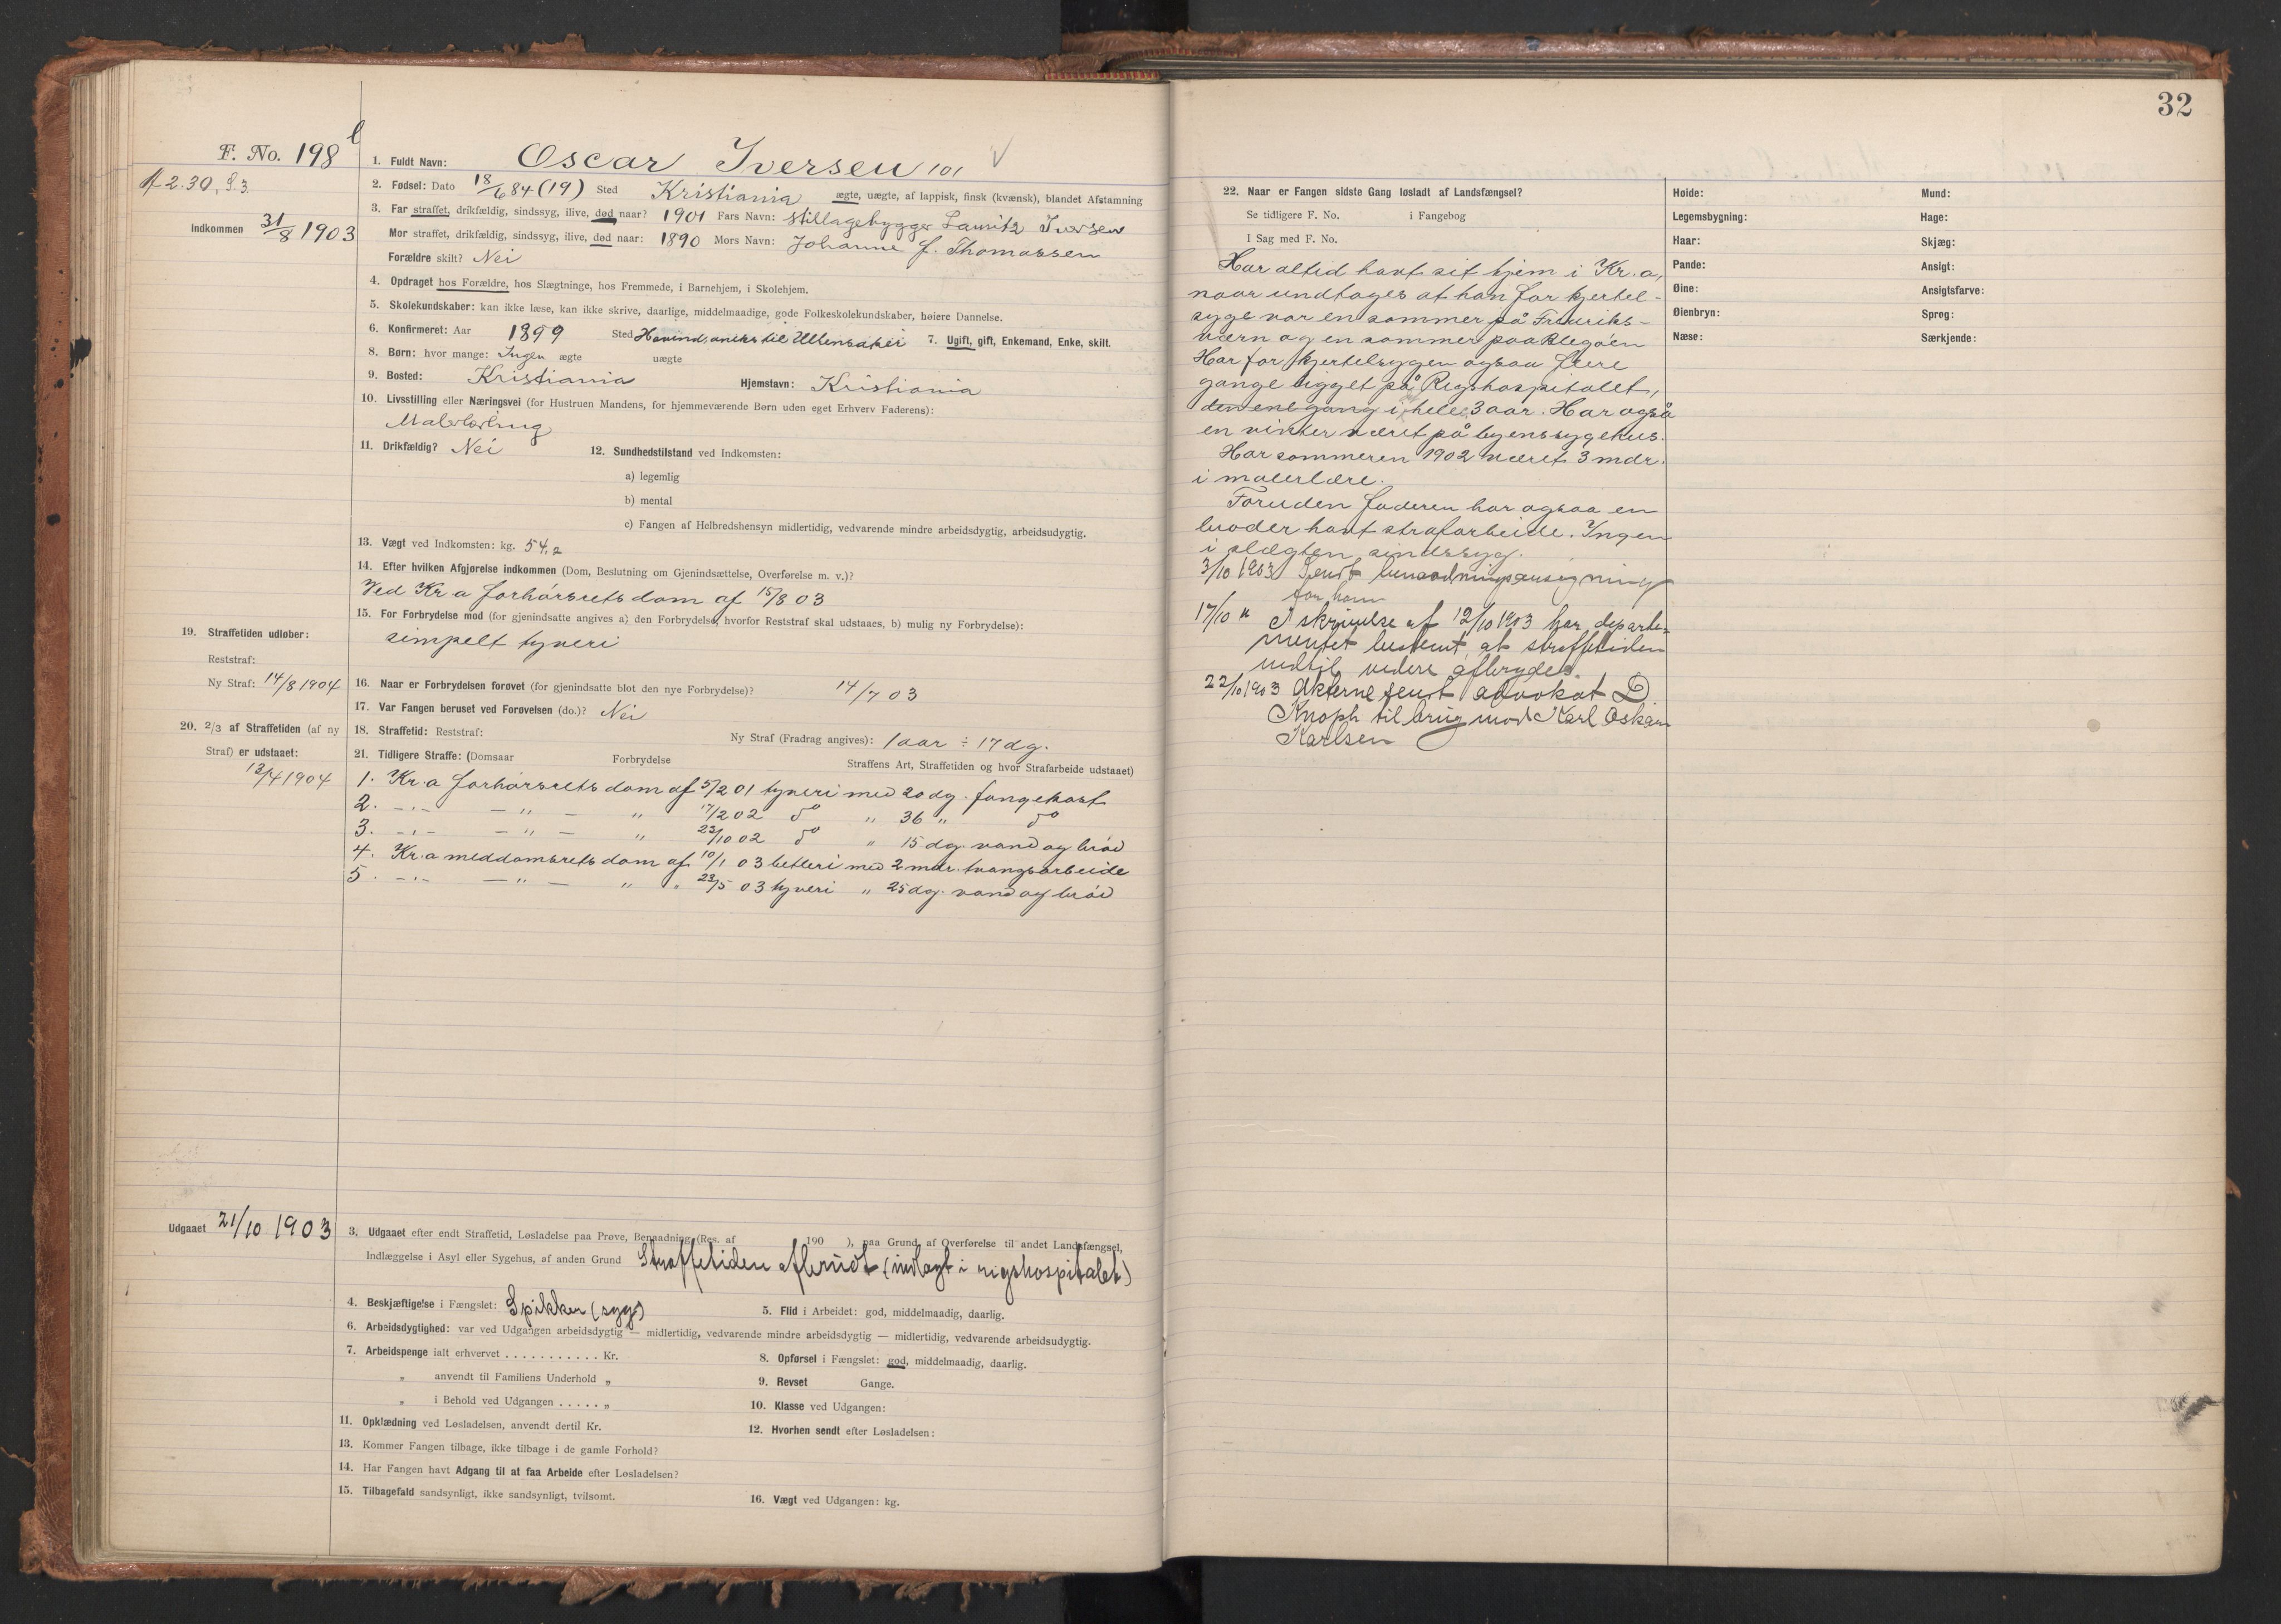 32
F. No. 198
A 2.30, S.3.
Indkommen 31/8 1903
1. Fuldt Navn: Oscar Iversen 101
2. Fødsel: Dato 18/6 84 (19) Sted Kristiania ægte, uægte, af lappisk, finsk (kvænsk), blandet Afstamning
3. Far straffet, drikfældig, sindssyg, ilive, død naar? 1901 Fars Navn: Stillagebygger Lauritz Iversen
Mor straffet, drikfældig, sindssyg, ilive, død naar: 1890 Mors Navn: Johanne J. Thomassen
Forældre skilt? Nei
4. Opdraget hos Forældre, hos Slægtninge, hos Fremmede, i Barnehjem, i Skolehjem.
5. Skolekundskaber: kan ikke læse, kan ikke skrive, daarlige, middelmaadige, gode Folkeskolekundskaber, høiere Dannelse.
6. Konfirmeret: Aar 1899 Sted Hovind, aneks til Ullensaker 7. Ugift, gift, Enkemand, Enke, skilt.
8. Børn: hvor mange: Ingen ægte uægte
9. Bosted: Kristiania Hjemstavn: Kristiania
10. Livsstilling eller Næringsvei (for Hustruen Mandens, for hjemmeværende Børn uden eget Erhverv Faderens):
Malerlærling
11. Drikfældig? Nei 12. Sundhedstilstand ved Indkomsten:
a) legemlig
b) mental
c) Fangen af Helbredshensyn midlertidig, vedvarende mindre arbeidsdygtig, arbeidsudygtig.
13. Vægt ved Indkomsten: kg. 54,2
14. Efter hvilken Afgjørelse indkommen (Dom, Beslutning om Gjenindsættelse, Overførelse m. v.)?
Ved Kr.a forhørsrets dom af 15/8 03
15. For Forbrydelse mod (for gjenindsatte angives a) den Forbrydelse, hvorfor Reststraf skal udstaaes, b) mulig ny Forbrydelse):
simpelt tyveri
19. Straffetiden udløber:
Reststraf:
Ny Straf: 14/8 1904
16. Naar er Forbrydelsen forøvet (for gjenindsatte blot den nye Forbrydelse)? 14/7 03
17. Var Fangen beruset ved Forøvelsen (do.)? Nei
20. 2/3 af Straffetiden (af ny
Straf) er udstaaet:
13/4 1904
18. Straffetid: Reststraf: Ny Straf (Fradrag angives): 1 aar ÷ 17 dg.
21. Tidligere Straffe: (Domsaar Forbrydelse Straffens Art, Straffetiden og hvor Strafarbeide udstaaet)
1. Kr.a forhørsrets dom af 5/2 01 tyveri med 20 dg. fangekost
2. -"- -"- " 17/2 02 do " 36 " do
3. -"- -"- " 23/10 02 do " 15 dg. vand og brød
4. Kr.a meddomsrets dom af 10/1 03 betleri med 2 mdr. tvangsarbeide
5. -"- -"- " " 23/5 03 tyveri " 25 dg. vand og brød
Udgaaet 21/10 1903
3. Udgaaet efter endt Straffetid, Løsladelse paa Prøve, Benaadning (Res. af 190 ), paa Grund af Overførelse til andet Landsfængsel,
Indlæggelse i Asyl eller Sygehus, af anden Grund Straffetiden afbrudt (indlagt i rigshospitalet)
4. Beskjæftigelse i Fængslet: Spikker (syg) 5. Flid i Arbeidet: god, middelmaadig, daarlig.
6. Arbeidsdygtighed: var ved Udgangen arbeidsdygtig — midlertidig, vedvarende mindre arbeidsdygtig — midlertidig, vedvarende arbeidsudygtig.
7. Arbeidspenge ialt erhvervet . . . . . . . . . . . Kr. 8. Opførsel i Fængslet: god, middelmaadig, daarlig.
„ anvendt til Familiens Underhold „ 9. Revset Gange.
„ i Behold ved Udgangen . . . . . „ 10. Klasse ved Udgangen:
11. Opklædning ved Løsladelsen, anvendt dertil Kr. 12. Hvorhen sendt efter Løsladelsen:
13. Kommer Fangen tilbage, ikke tilbage i de gamle Forhold?
14. Har Fangen havt Adgang til at faa Arbeide efter Løsladelsen?
15. Tilbagefald sandsynligt, ikke sandsynligt, tvilsomt. 16. Vægt ved Udgangen: kg.
22. Naar er Fangen sidste Gang løsladt af Landsfængsel?
Se tidligere F. No. i Fangebog
I Sag med F. No.
Har altid havt sit hjem i Kr.a,
naar undtages at han for kjertel-
syge var en sommer på Fredriks-
værn og en sommer paa
Har for kjertelsygen ogsaa flere
gange ligget på Rigshospitalet,
den ene gang i hele 3 aar. Har også
en vinter været på byens sygehus.
Har sommeren 1902 været 3 mdr.
i malerlære.
Foruden faderen har ogsaa en
broder havt strafarbeide. Ingen
i slægten sindssyg.
3/10 1903 Sendt benaadningsansøgning
for ham
17/10 " I skrivelse af 12/10 1903 har departe-
mentet bestemt, at straffetiden
indtil videre afbrydes.
22/10 1903 Akterne sendt advokat D.
Knoph til brug mod Karl Oskar
Karlsen
Høide: Mund:
Legemsbygning: Hage:
Haar: Skjæg:
Pande: Ansigt:
Øine: Ansigtsfarve:
Øienbryn: Sprog:
Næse: Særkjende: